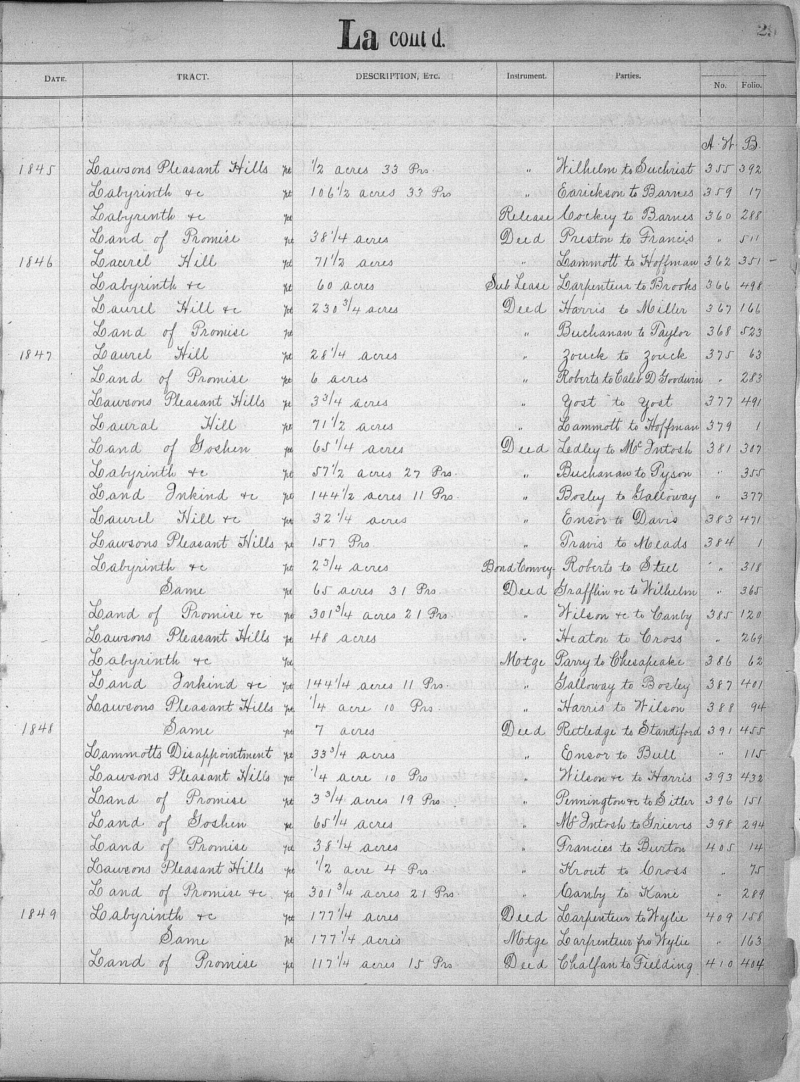 La cont'd.
DATE. TRACT. DESCRIPTION, ETC. Instrument. Parties. No. Folio.
A. W. B
1845 Lawsons Pleasant Hills pt 1/2 acres 33 Prs. " Wilhelm to Suchrist 355 392
Labyrinth &c pt 106 1/2 acres 33 Prs " Earickson to Barnes 359 17
Labyrinth &c pt Release Cockey to Barnes 360 288
Land of Promise pt 38 1/4 acres Deed Preston to Francis " 511
1846 Laurel Hill pt 71 1/2 acres " Lammott to Hoffman 362 351
Labyrinth &c pt 60 acres Sub Lease Carpenteur to Brooks 366 498
Laurel Hill &c pt 230 3/4 acres Deed Harris to Miller 367 166
Land of Promise pt " Buchanan to Taylor 368 523
1847 Laurel Hill pt 28 1/4 acres " Zouck to Zouck 375 63
Land of Promise pt 6 acres " Roberts to Caleb D Goodwin " 283
Lawsons Pleasant Hills pt 3 3/4 acres " Yost to Yost 377 491
Laural Hill pt 71 1/2 acres " Lammott to Hoffman 379 1
Land of Goshen pt 65 1/4 acres Deed Ledley to Mc Intosh 381 307
Labyrinth &c pt 57 1/2 acres 27 Prs. " Buchanan to Tyson " 355
Land Inkind &c pt 144 1/2 acres 11 Prs. " Bosley to Galloway " 377
Laurel Hill &c pt 32 1/4 acres " Ensor to Davis 383 471
Lawsons Pleasant Hills pt 157 Prs " Travis to Meads 384 1
Labyrinth &c pt 2 3/4 acres Bond Convey. Roberts to Steel " 318
Same pt 65 acres 31 Prs. Deed Grafflin &c to Wilhelm " 365
Land of Promise &c pt 301 3/4 acres 21 Prs. " Wilson &c to Canby 385 120
Lawsons Pleasant Hills pt 48 acres " Heaton to Cross " 269
Labyrinth &c pt Motge Parry to Chesapeake 386 62
Land Inkind &c pt 144 1/4 acres 11 Prs. " Galloway to Bosley 387 401
Lawsons Pleasant Hills pt 1/4 acre 10 Prs. " Harris to Wilson 388 94
1848 Same pt 7 acres Deed Rutledge to Standiford 391 455
Lammotts Disappointment pt 33 3/4 acres " Ensor to Bull " 115
Lawsons Pleasant Hills pt 1/4 acre 10 Prs " Wilson &c to Harris 393 432
Land of Promise pt 3 3/4 acres 19 Prs. " Pennington &c to Sitler 396 151
Land of Goshen pt 65 1/4 acres " Mc Intosh to Grieves 398 294
Land of Promise pt 38 1/4 acres " Francies to Burton 405 14
Lawsons Pleasant Hills pt 1/2 acre 4 Prs. " Krout to Cross " 75
Land of Promise &c pt 301 3/4 acres 21 Prs. " Canby to Kane " 289
1849 Labyrinth &c pt 177 1/4 acres Deed Carpenteur to Wylie 409 158
Same pt 177 1/4 acres Motge Carpenteur fro Wylie " 163
Land of Promise pt 117 1/4 acres 15 Prs. Deed Chalfan to Fielding 410 404